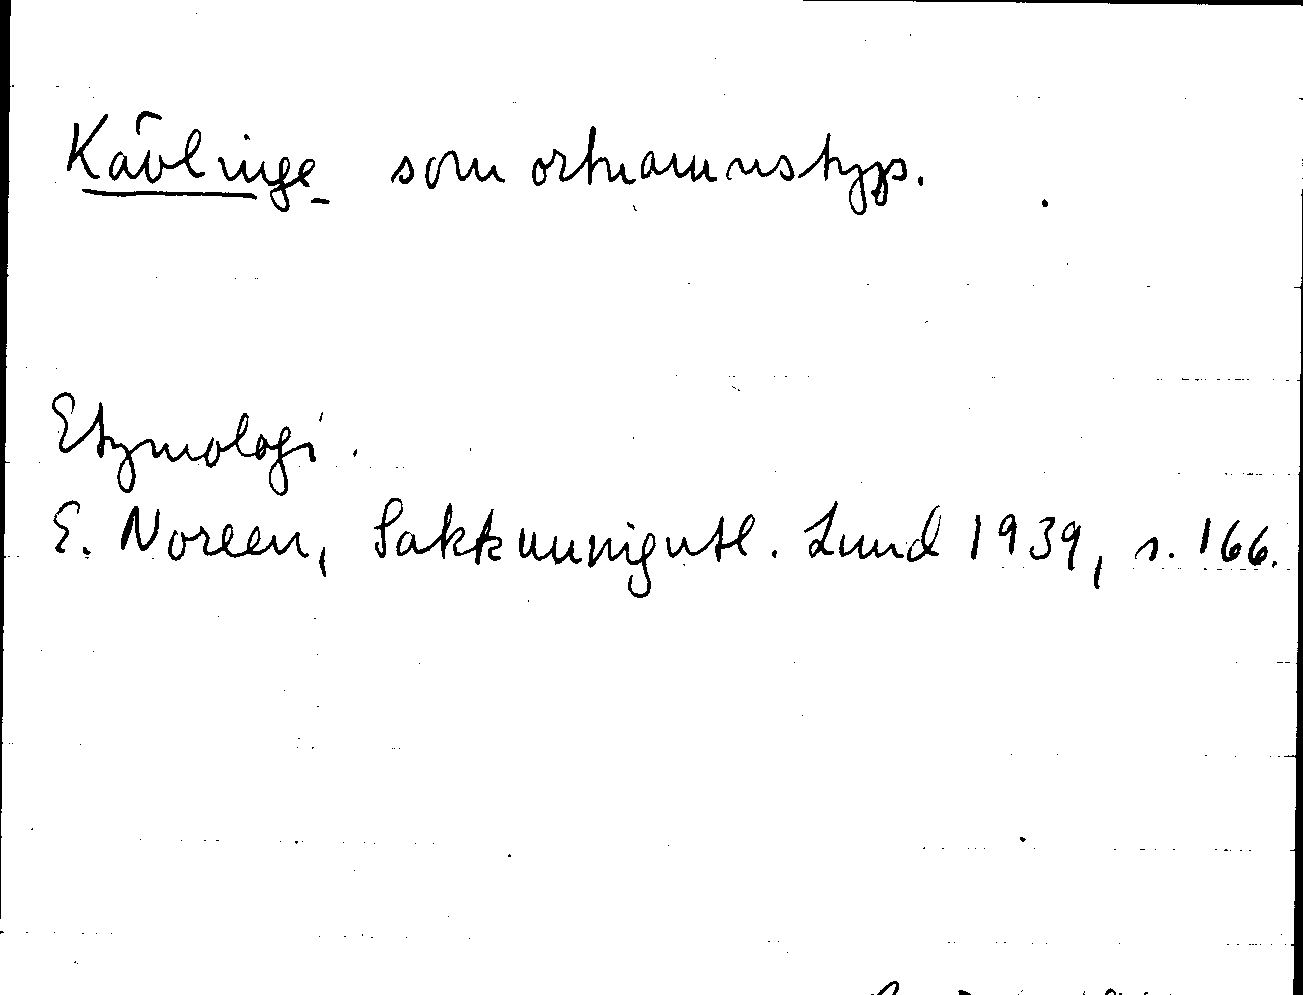 Kävlinge som ortnamnstyp.
Etymologi.
E. Noreen, Sakkunnigutl. Lund 1939, s. 166.